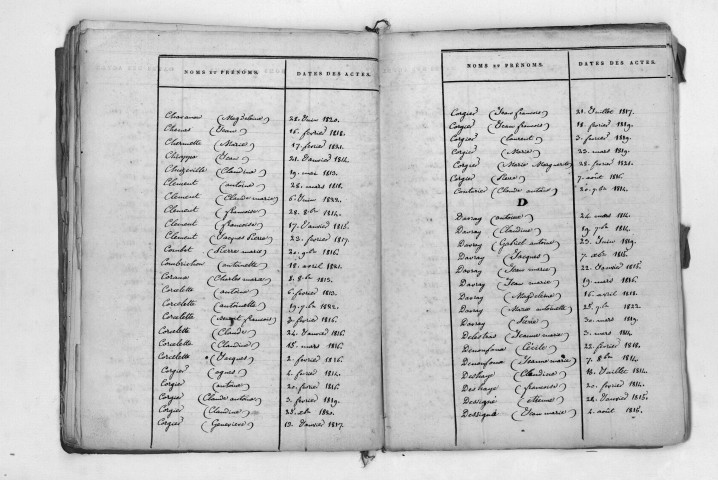 NOMS ET PRÉNOMS. DATES DES ACTES.
Chavanne (Magdelaine) 28. Juin 1820.
Chenas (Jean) 16. fevrier 1818.
Chermette (Marie) 17. fevrier 1821.
(Jean) 21. Janvier 1814.
(Claudine) 19. mai 1813.
Clement (antoine) 28. mars 1818.
Clement (Claude marie) 6. Juin 1822.
Clement (francoise) 28. 8.bre 1814.
Clement (francoise) 17. Janvier 1815.
Clement (Jacques Pierre) 23. fevrier 1817.
Combet (Pierre marie) 20. 9.bre 1816
Combrichon (antoinette) 18. avril 1821.
(Charles marie) 8. 8.bre 1813.
Corcelette (antoine) 6. fevrier 1813.
Corcelette (antoinette) 19. 7.bre 1822.
Corcelette (benoit francois) 3. fevrier 1816
Corcelette (Claude) 24. Janvier 1816
Corcelette (Claudine) 15. mars 1816
Corcelette (Jacques) 2. fevrier 1816
Corgier (agnes) 2. fevrier 1814.
Corgier (antoine) 20. fevrier 1816
Corgier (Claude antoine) 3. fevrier 1819.
Corgier (Claudine) 28. xbre 1820.
Corgier (Genevieve) 13. Janvier 1817.
NOMS ET PRÉNOMS. DATES DES ACTES.
Corgier (Jean francois) 21. Juillet 1817.
Corgier (Jean francois) 18. fevrier 1819.
Corgier (laurent) 3. fevrier 1819.
Corgier (Marie) 23. mars 1819.
Corgier (Marie Marguerite) 28. fevrier 1821.
Corgier (Pierre) 7. août 1816
Couturier (Claude antoine) 20. 9.bre 1814.
D
Davray (antoine) 24. mars 1814.
Davray (Claudine) 19. 7.bre 1814.
Davray (Gabriel antoine) 23. Juin 1819.
Davray (Jacques) 7. xbre 1815.
Davray (Jean marie) 22. Janvier 1815.
Davray (Jean marie) 19. mars 1816.
Davray (Magdelaine) 16. avril 1818.
Davray (Marie antoinette) 28. 9.bre 1822.
Davray (Pierre) 30. mars 1819.
(Jeanne marie) 3. mars 1814.
Denonfoux (Cécile) 22. fevrier 1818.
Denonfoux (Jeanne marie) 7. 8.bre 1814.
Deshaye (Claudine) 18. Juillet 1814.
Deshaye (francoise) 20. fevrier 1814.
Dessigné (etienne) 28. Janvier 1815.
Dessigné (Jean marie) 2. août 1816.